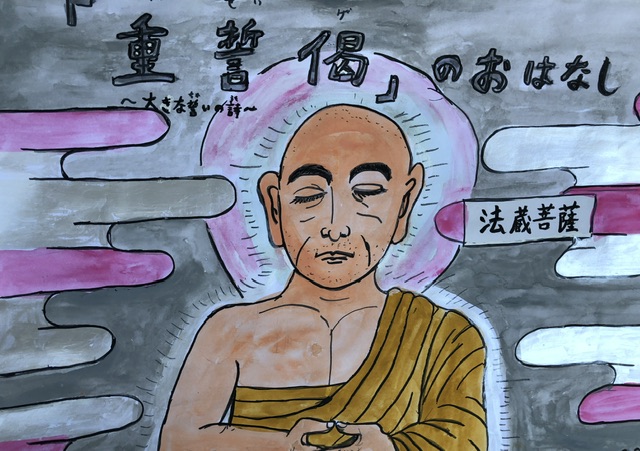 「重誓偈」のおはなし
～大きな誓いの詩～
法蔵菩薩